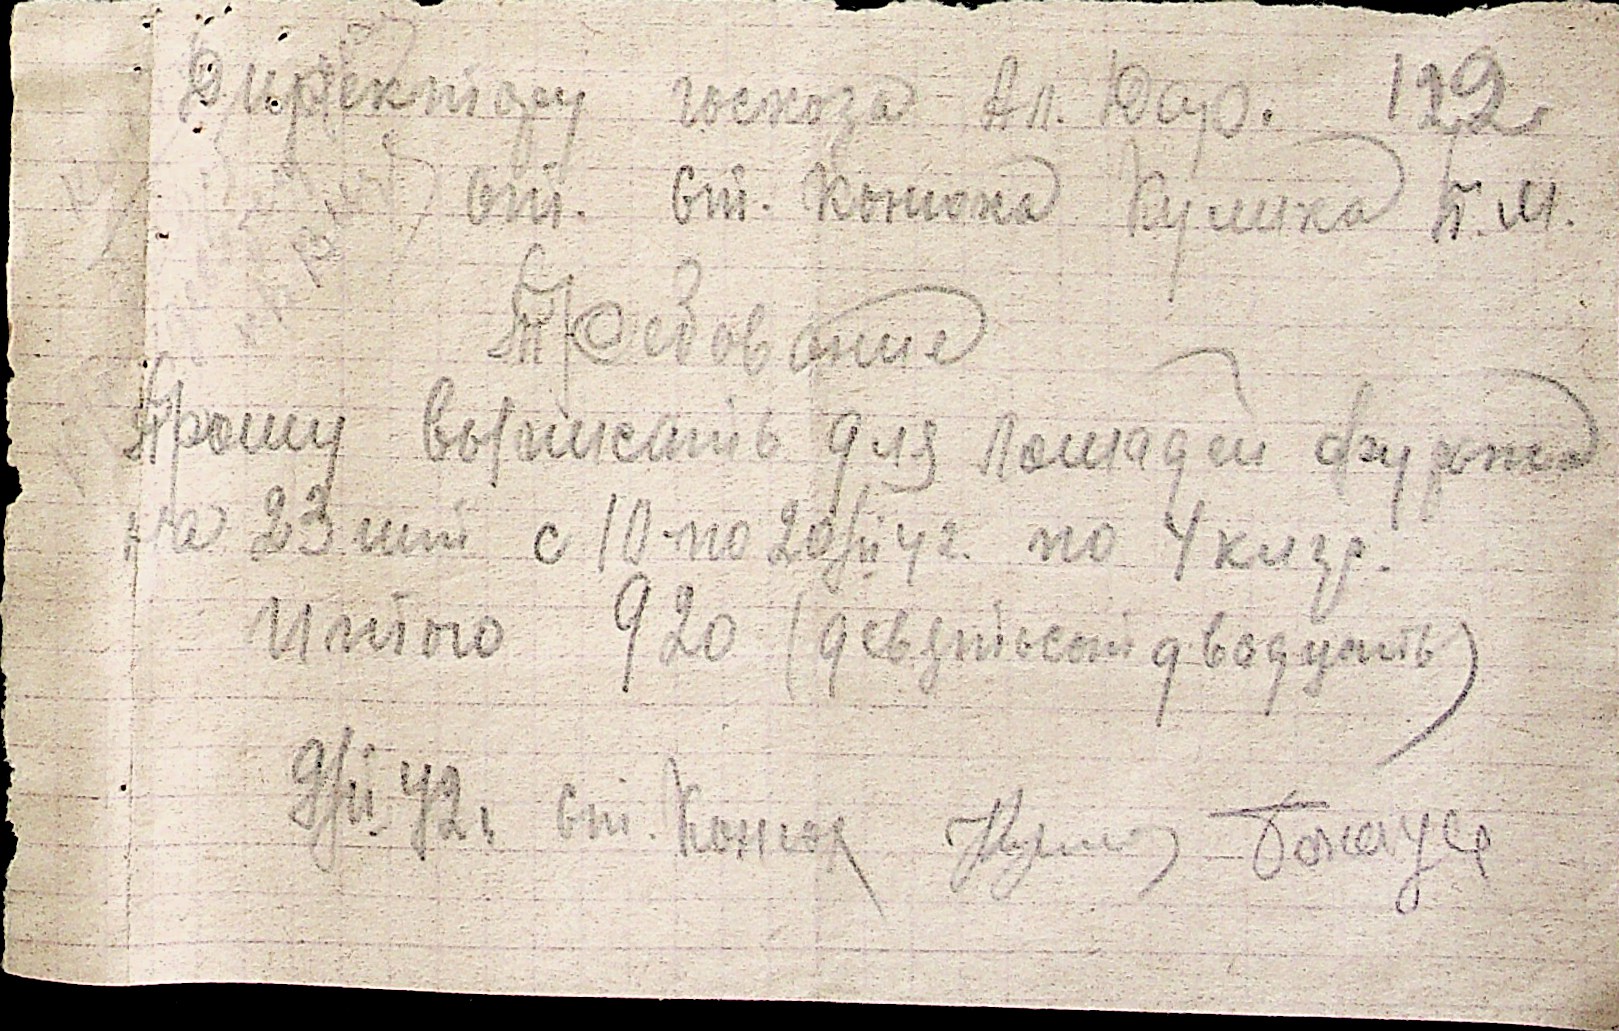 Директору госхоза Ал. Юсуф. 122
от. ст. Конюха Кулика П. М.
Требование
Прошу выписать для лошадей фуража
на 23 шт с 10 по 20/II 42. по 4 килгр.
Итого 920 (девятьсот двадцать)
9/II 42г ст. Конюх